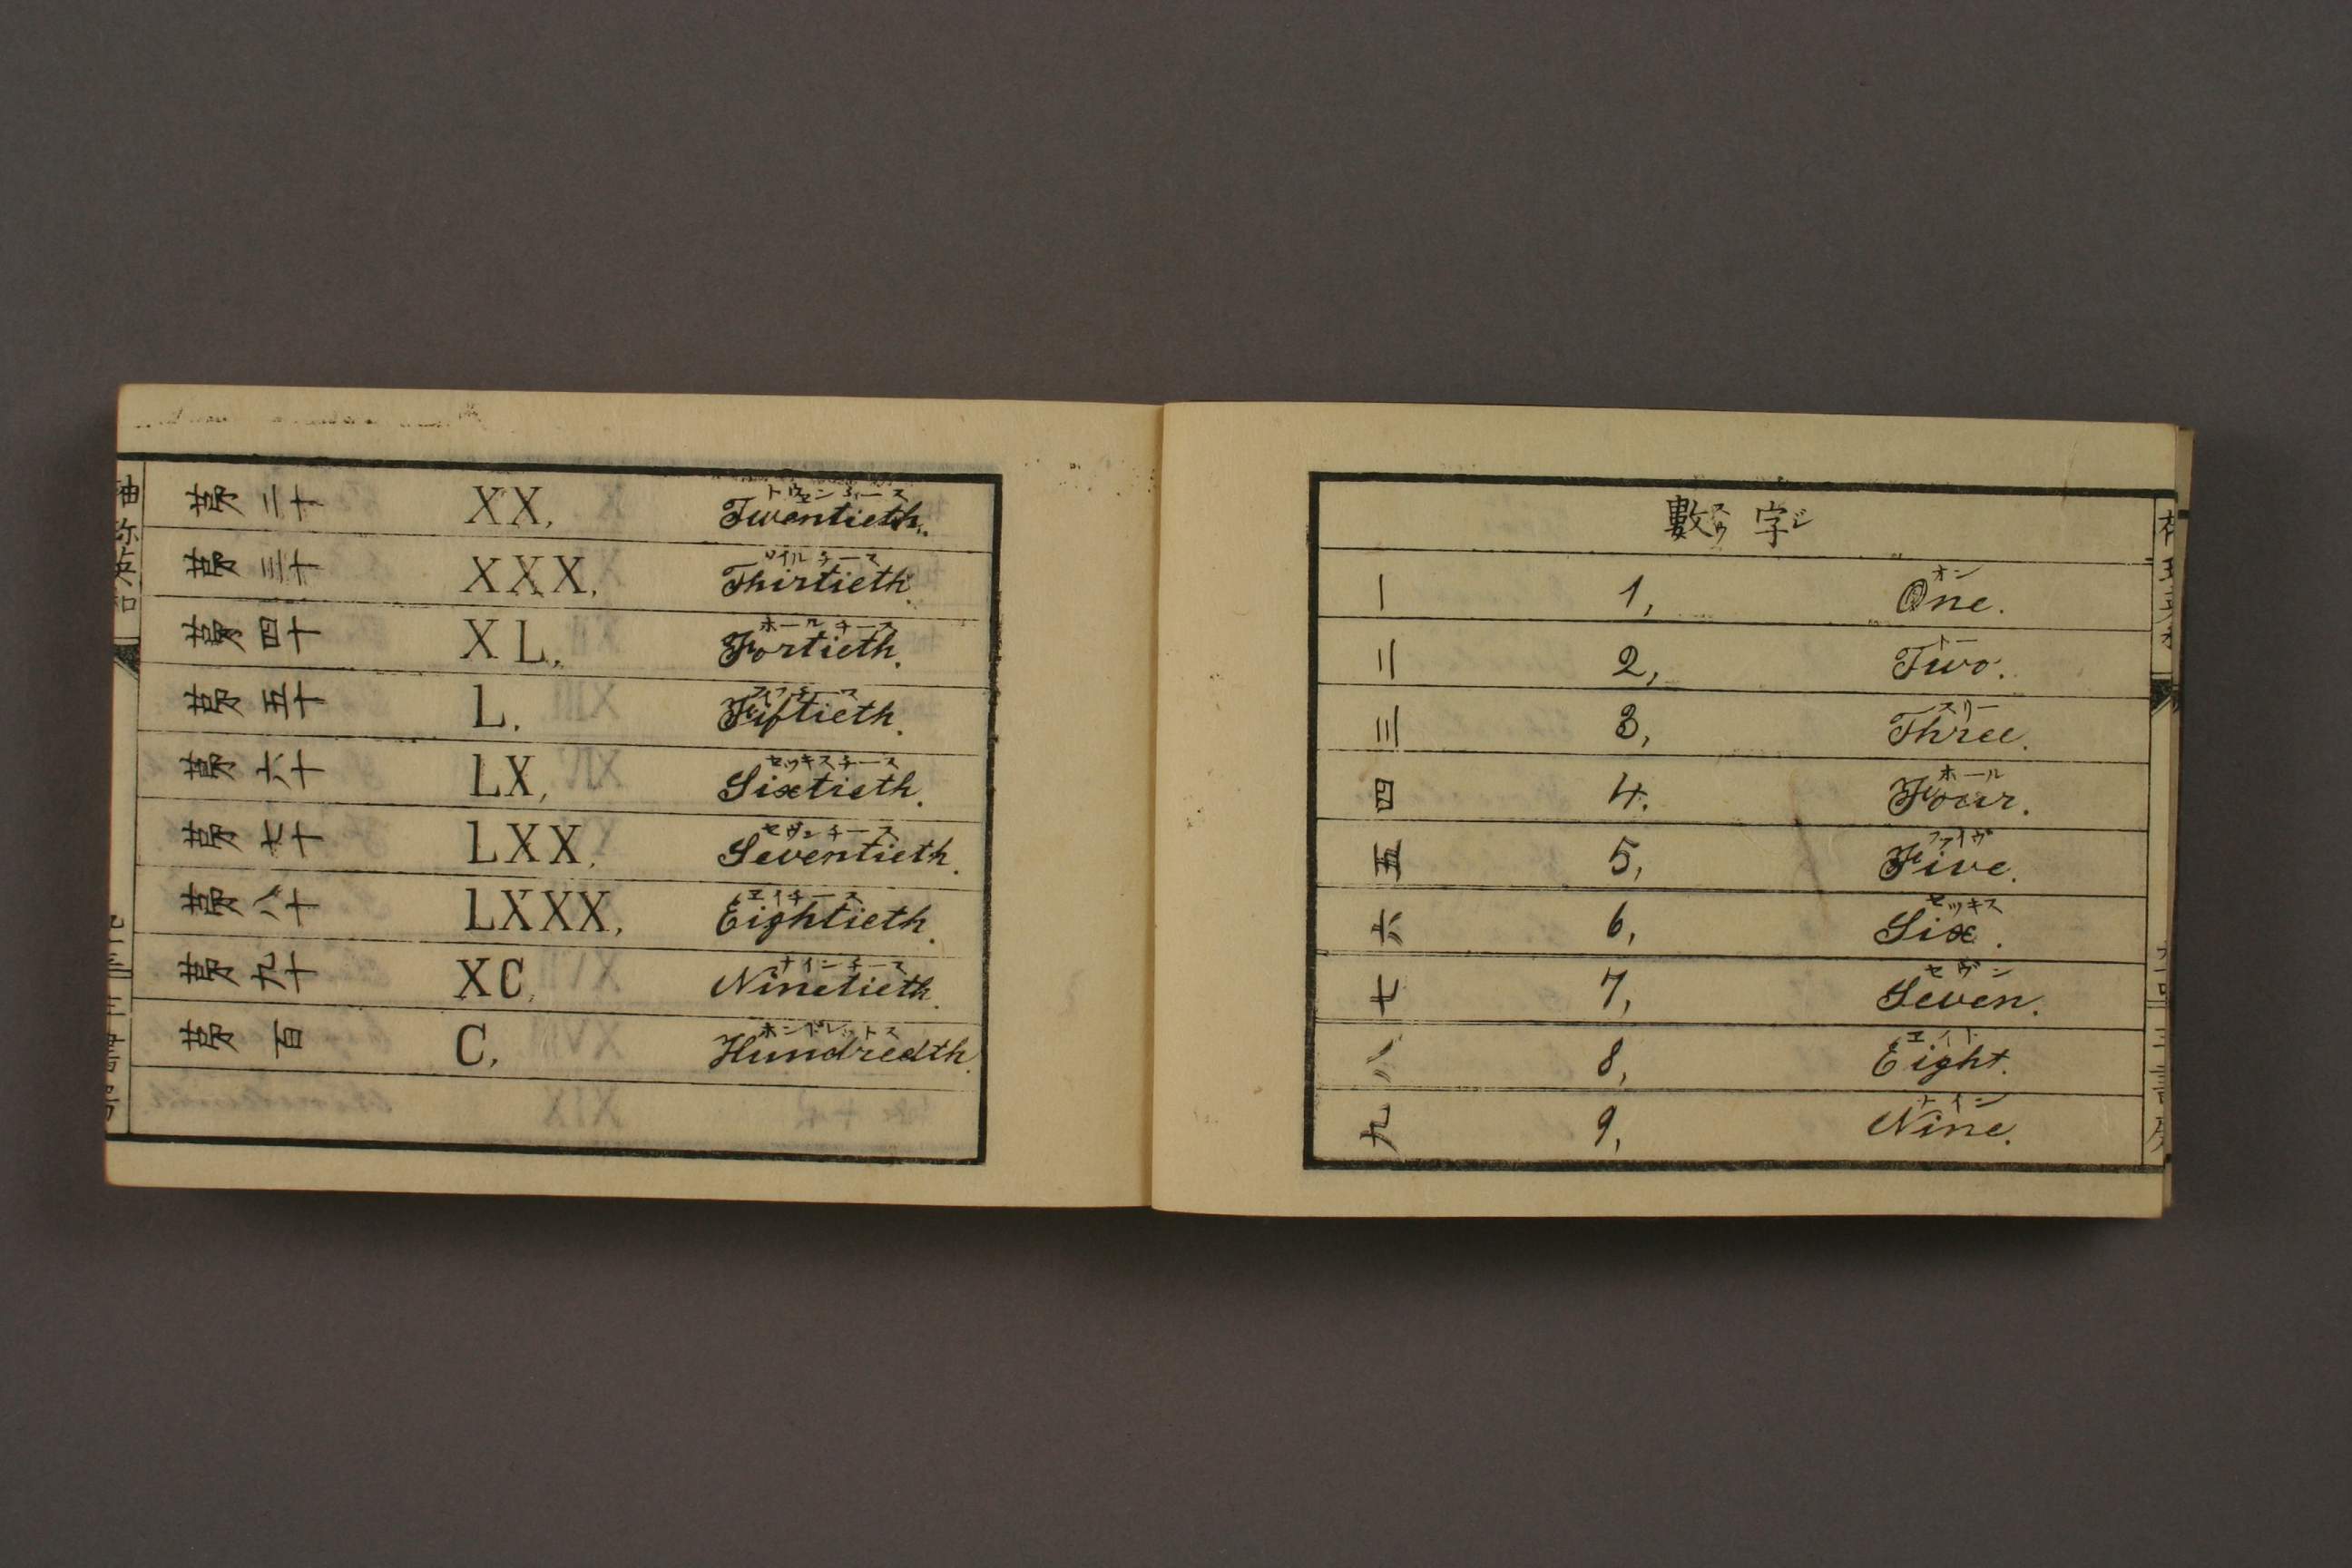 第二十 XX, トウェンチース Twentieth.
第三十 XXX, ソイルチース Thirtieth.
第四十 XL, ホールチース Fortieth.
第五十 L, フィフチース Fiftieth.
第六十 LX, セッキスチース Sixtieth.
第七十 LXX, セヴンチース Seventieth.
第八十 LXXX, ヱイチース Eightieth.
第九十 XC, ナインチース Ninetieth.
第百 C, ホンドレットス Hundredth.
數スウ字ジ
一 1, オン One.
二 2, トー Two.
三 3, スリー Three.
四 4, ホール Four.
五 5, ファイヴ Five.
六 6, セッキス Six.
七 7, セヴン Seven.
八 8, ヱイト Eight.
九 9, ナイン Nine.